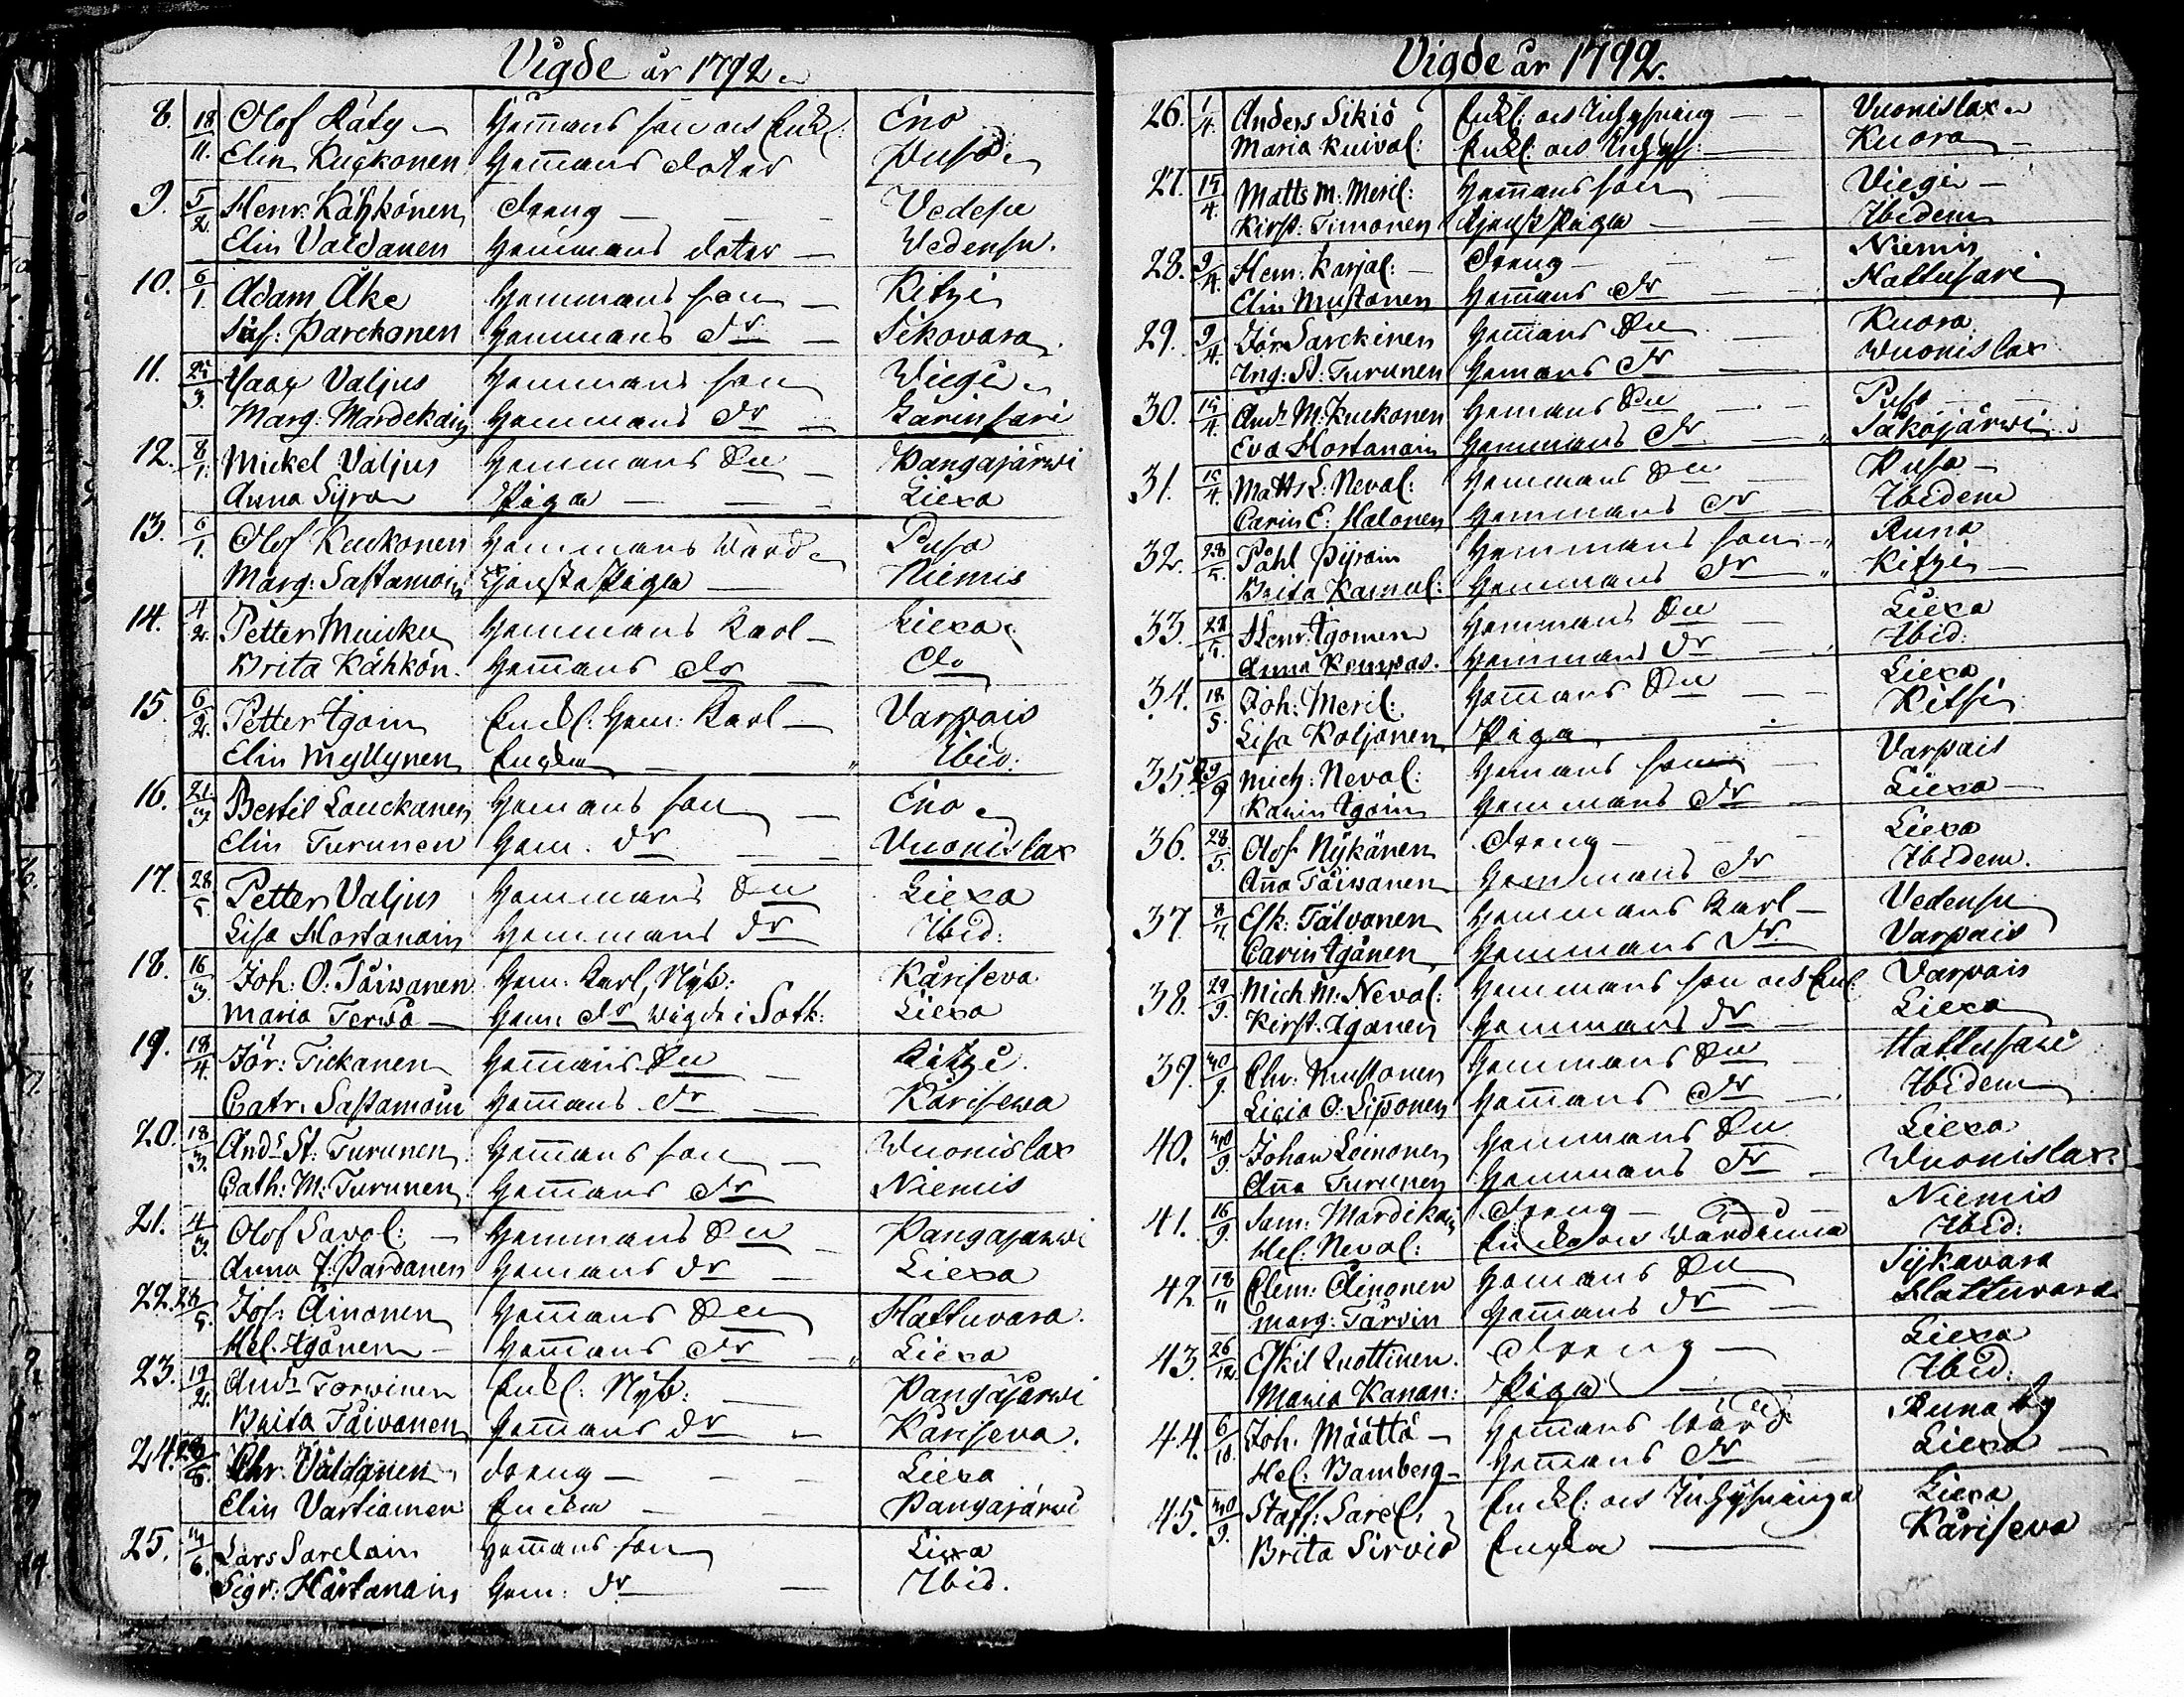 Vigde år 1792.
8. 18/11. Olof Räty Hemmans son och Enkl: Eno
Elin Kuckonen Hemmans doter Puso
9. 5/2. Henr: Kähkönen dreng Vedesu
Elin Valdanen Hemmans doter Wedensu.
10. 6/1. Adam Åke Hemmans son Kitzi
Parckonen Hemmans dr Sikovara
11. 25/3. Valjus Hemmans son Wiegi
Marg: Mardekain Hemmans dr Särinsari
12. 8/1. Mickel Valjus Hemmans Du Pangajärwi
Anna Syran Piga Liexa
13. 6/1. Olof Kuckonen Hemmans Wärd Puso
Marg: Sastamoin Tjensta Piga Niemis
14. 4/2. Petter Muicku Hemmans Karl Liexa
Brita Kähkön. Hem̄ans dr do
15. 6/2. Petter Igoin Enckl: Hem: Karl Varpais
Elin Myllynen Enckia Ibid:
16. 21/3 Bertil Louckanen Hemans son Eno
Elin Turunen Hem. dr Vuonislax
17. 28/5. Petter Valjus Hemmans Du Liexa
Lisa Hortanain Hemmans dr Ibid:
18. 16/3. Joh: O: Täiwanen Hem: Karl, Nyb: Käriseva
Maria Terwä Hem: dr wigde i Sotk: Liexa
19. 18/4. Jör: Tickanen Hem̄ans Du Kitzi.
Catr: Sastamoin Hem̄ans dr Kärisewa
20. 18/3. And: St: Turunen Hem̄ans son Wuonislax
Cath: M: Turunen Hem̄ans dr Niemis
21. 4/3. Olof Savol: Hemmans Du Pangajarwi
Anna J: Pardanen Hemans dr Liexa
22. 28/5. Jos: Äinonen Hem̄ans Du Hattuvara.
Hel. Igönen Hem̄ans dr Liexa
23. 19/2. And: Torwinen Enkl: Nyb: Pangäjärwi
Brita Täivanen Hem̄ans dr Käriseva.
24. Chr: Väldänen dreng Liexa
Elin Vartiainen Enckia Pangajärwi
25. Lars Sarelain Hem̄ans son Liexa
Sigr: Härtanain Hem: dr Ibid.
Vigde år 1792.
26. 1/4. Anders Sikiö Enkl: och Inhysning Vuonislax
Maria Kuival: Enkl: och Inhys: Kuora
27. 15/4. Matts M: Meril: Hem̄ans son Viegi
Kirst: Timonen Tjenst Piga Ibidem
28. 9/4. Hem: Karjal: dreng Niemis
Elin Mustonen Hem̄ans dr Hattusari
29. 9/4. Jör Sarckinen Hem̄ans Du Kuora
Ing: St: Turunen Hemans dr Wuonislax
30. 15/4. And: M: Kuckonen Hemans Du Puso
Eva Hortanain Hemmans dr Jäkäjärwi
31. 15/4. Matts L: Neval: Hemmans Du Puso
Carin E: Halonen Hemmans dr Ibidem
32. 28/5. Påhl Pyrain Hemmans son Runa
Brita Kainol: Hemmans dr Kitzi
33. Henr: Igonen Hemmans Du Liexa
Anna Kempas. Hemmans dr Ibid:
34. 18/5. Joh: Meril: Hem̄ans Du Liexa
Lisa Koljonen Piga Kitsi
35. 29/9 Mich: Neval: Hemans son Varpais
Karin Igoin Hemmans dr Liexa
36. 28/5. Olof Nykänen dreng Liexa
An̄a Täiwanen Hemmans dr Ibidem.
37. Esk: Tälvanen Hemmans Karl Vedensu
Carin Igänen Hemmans dr Varpais
38. 29/9. Mich: M: Neval: Hemmans son och Enl: Varpais
Kirst: Igonen Hemmans dr Liexa
39. 30/9. Chr: Mustonen Hemmans Du Hattusari
Licia O: Sip̄onen Hem̄ans dr Ibidem
40. 30/9. Johan Leinonen Hemmans Du Liexa
An̄a Turunen Hemmans dr Wuonislax
41. 16/9. Sam: Mardikain dreng Niemis
Hel: Neval: Enckia och Wärdinna Ibid:
42. 18/11 Clem: Äinonen Hemans Du Sykavara
Marg: Tarvin Hem̄ans dr Hattuvara
43. 26/12. Eskil Luottinen. dreng Liexa
Maria Kanan: Piga Ibid:
44. 6/10. Joh: Määttä Hem̄ans Wärd Runa By
Hel: Bamberg Hem̄ans dr Liexa
45. 30/9. Staff: Sarel: Enckl: och Inhysninga Liexa
Brita Sirviö Enckia Käriseva